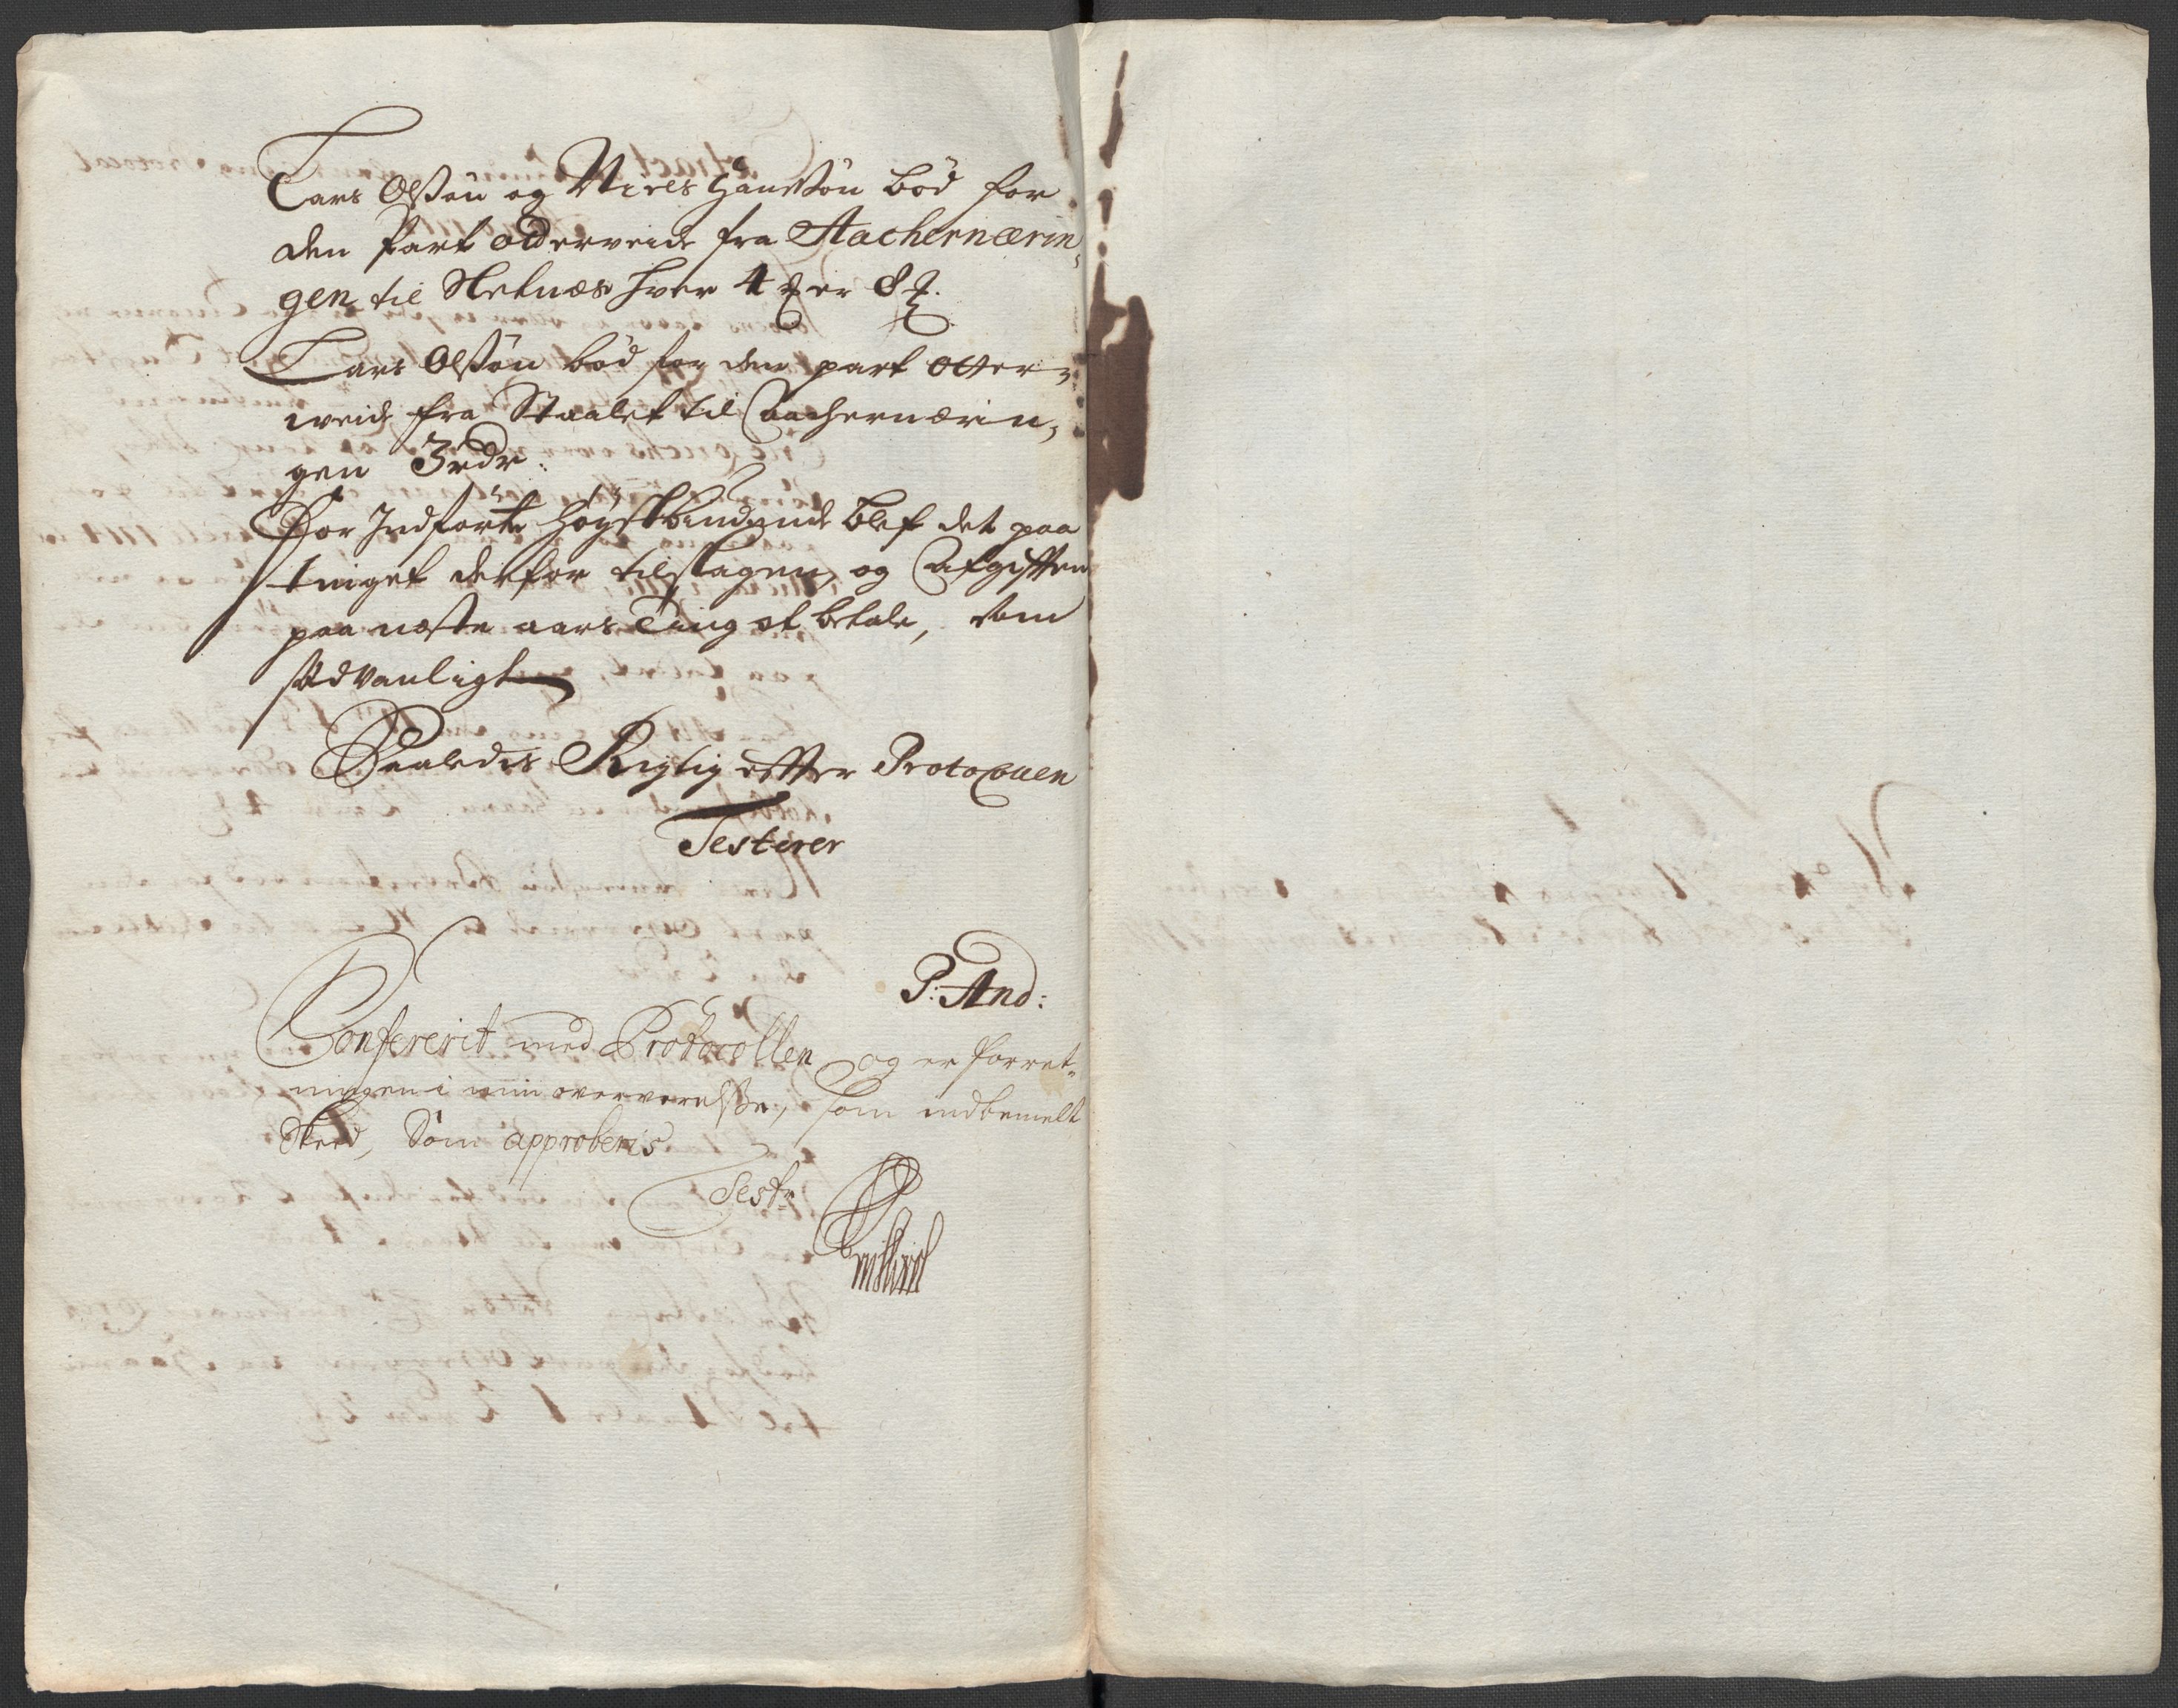 Lars Olsøn og Niels Hansøn bød for
den part otterveide fra Aachernærin,
gen til Helnæs hver 4 ℔ er 8 ℔.
Lars Olsøn bød for den part otter,
weide fra Staalet til Aachernærin,
gen 3 rdr:
For Indførte Høystbiudende blef det paa
tinget derfor tilslagen, og Afgifften
paa næste aars Ting at betale, som
sædvanligt
Saaledis Rigtig effter Protocollen
Testerer
P: And:
Confererit med Protocollen og er forret„
ningen i min overværelsse, som indbemelt
Skeed, Som approberis
Test: